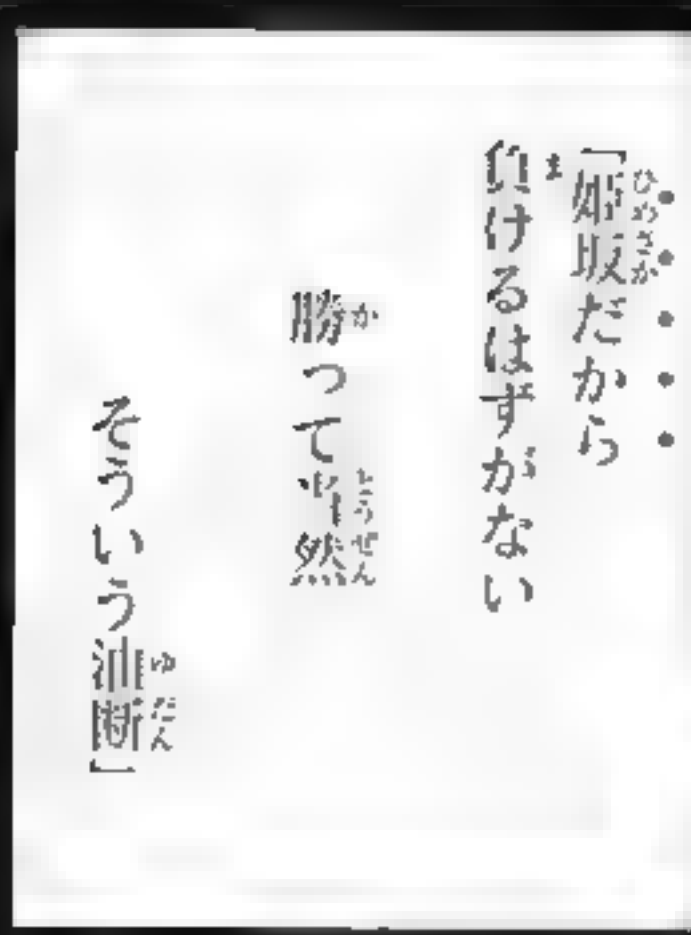 「姫坂だから
負けるはずがない
勝って当然
そういう油断」